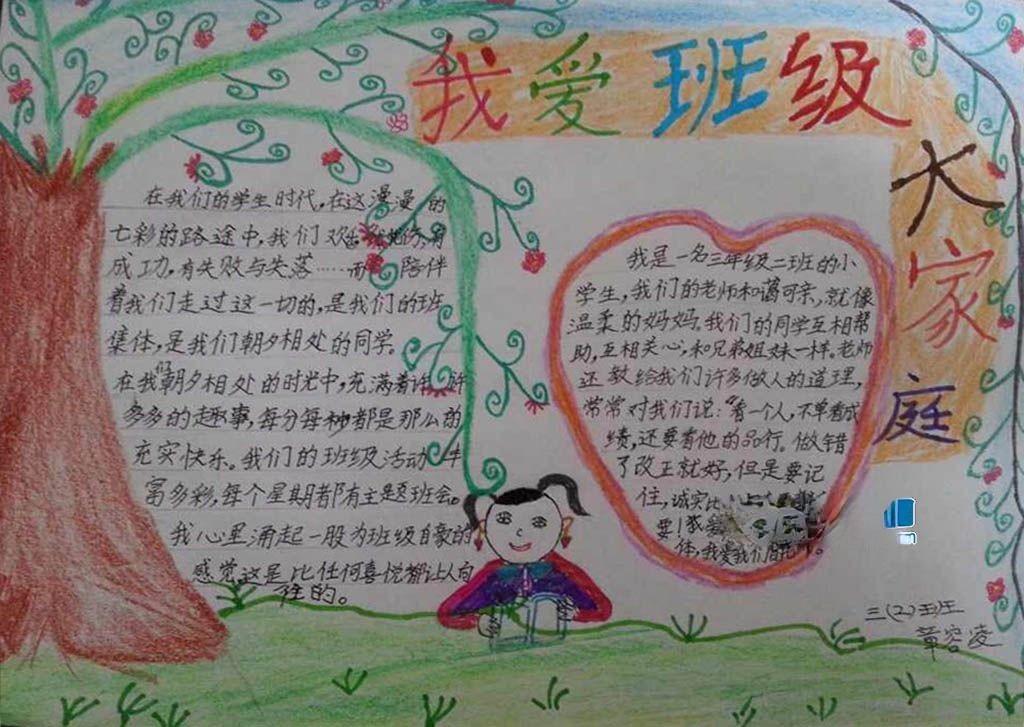 我爱班级
大家庭
在我们的学生时代,在这漫漫的
七彩的路途中,我们欢
成功,有失败与失落……而陪伴
着我们走过这一切的,是我们的班
集体,是我们朝夕相处的同学。
在我们朝夕相处的时光中,充满着许许
多多的趣事,每分每秒都是那么的
充实快乐。我们的班级活动丰
富多彩,每个星期都有主题班会。
我心里涌起一股为班级自豪的
感觉这是比任何喜悦都让人向
往的。
我是一名三年级二班的小
学生,我们的老师和蔼可亲,就像
温柔的妈妈。我们的同学互相帮
助,互相关心,和兄弟姐妹一样。老师
还教给我们许多做人的道理,
常常对我们说:“看一个人,不单看成
绩,还要看他的品行。做错
了改正就好,但是要记
住,诚实比
要!我爱
体,我爱我们
三(2)班